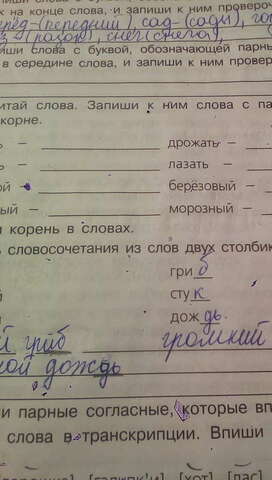 х на конце слова, и запиши к ним провероч
перёд-(передний), сад-(сады), го
(снега),
пиши слова с буквой, обозначающей парны
в середине слова, и запиши к ним провер
итай слова. Запиши к ним слова с па
корне.
ь – дрожать –
ь – лазать –
ой – берёзовый –
ый – морозный –
и корень в словах.
ь словосочетания из слов двух столбик
гриб
стук
й дождь
й гриб громкий
кой дождь
и парные согласные, которые вп
слова в транскрипции. Впиши
[хот] [пас]